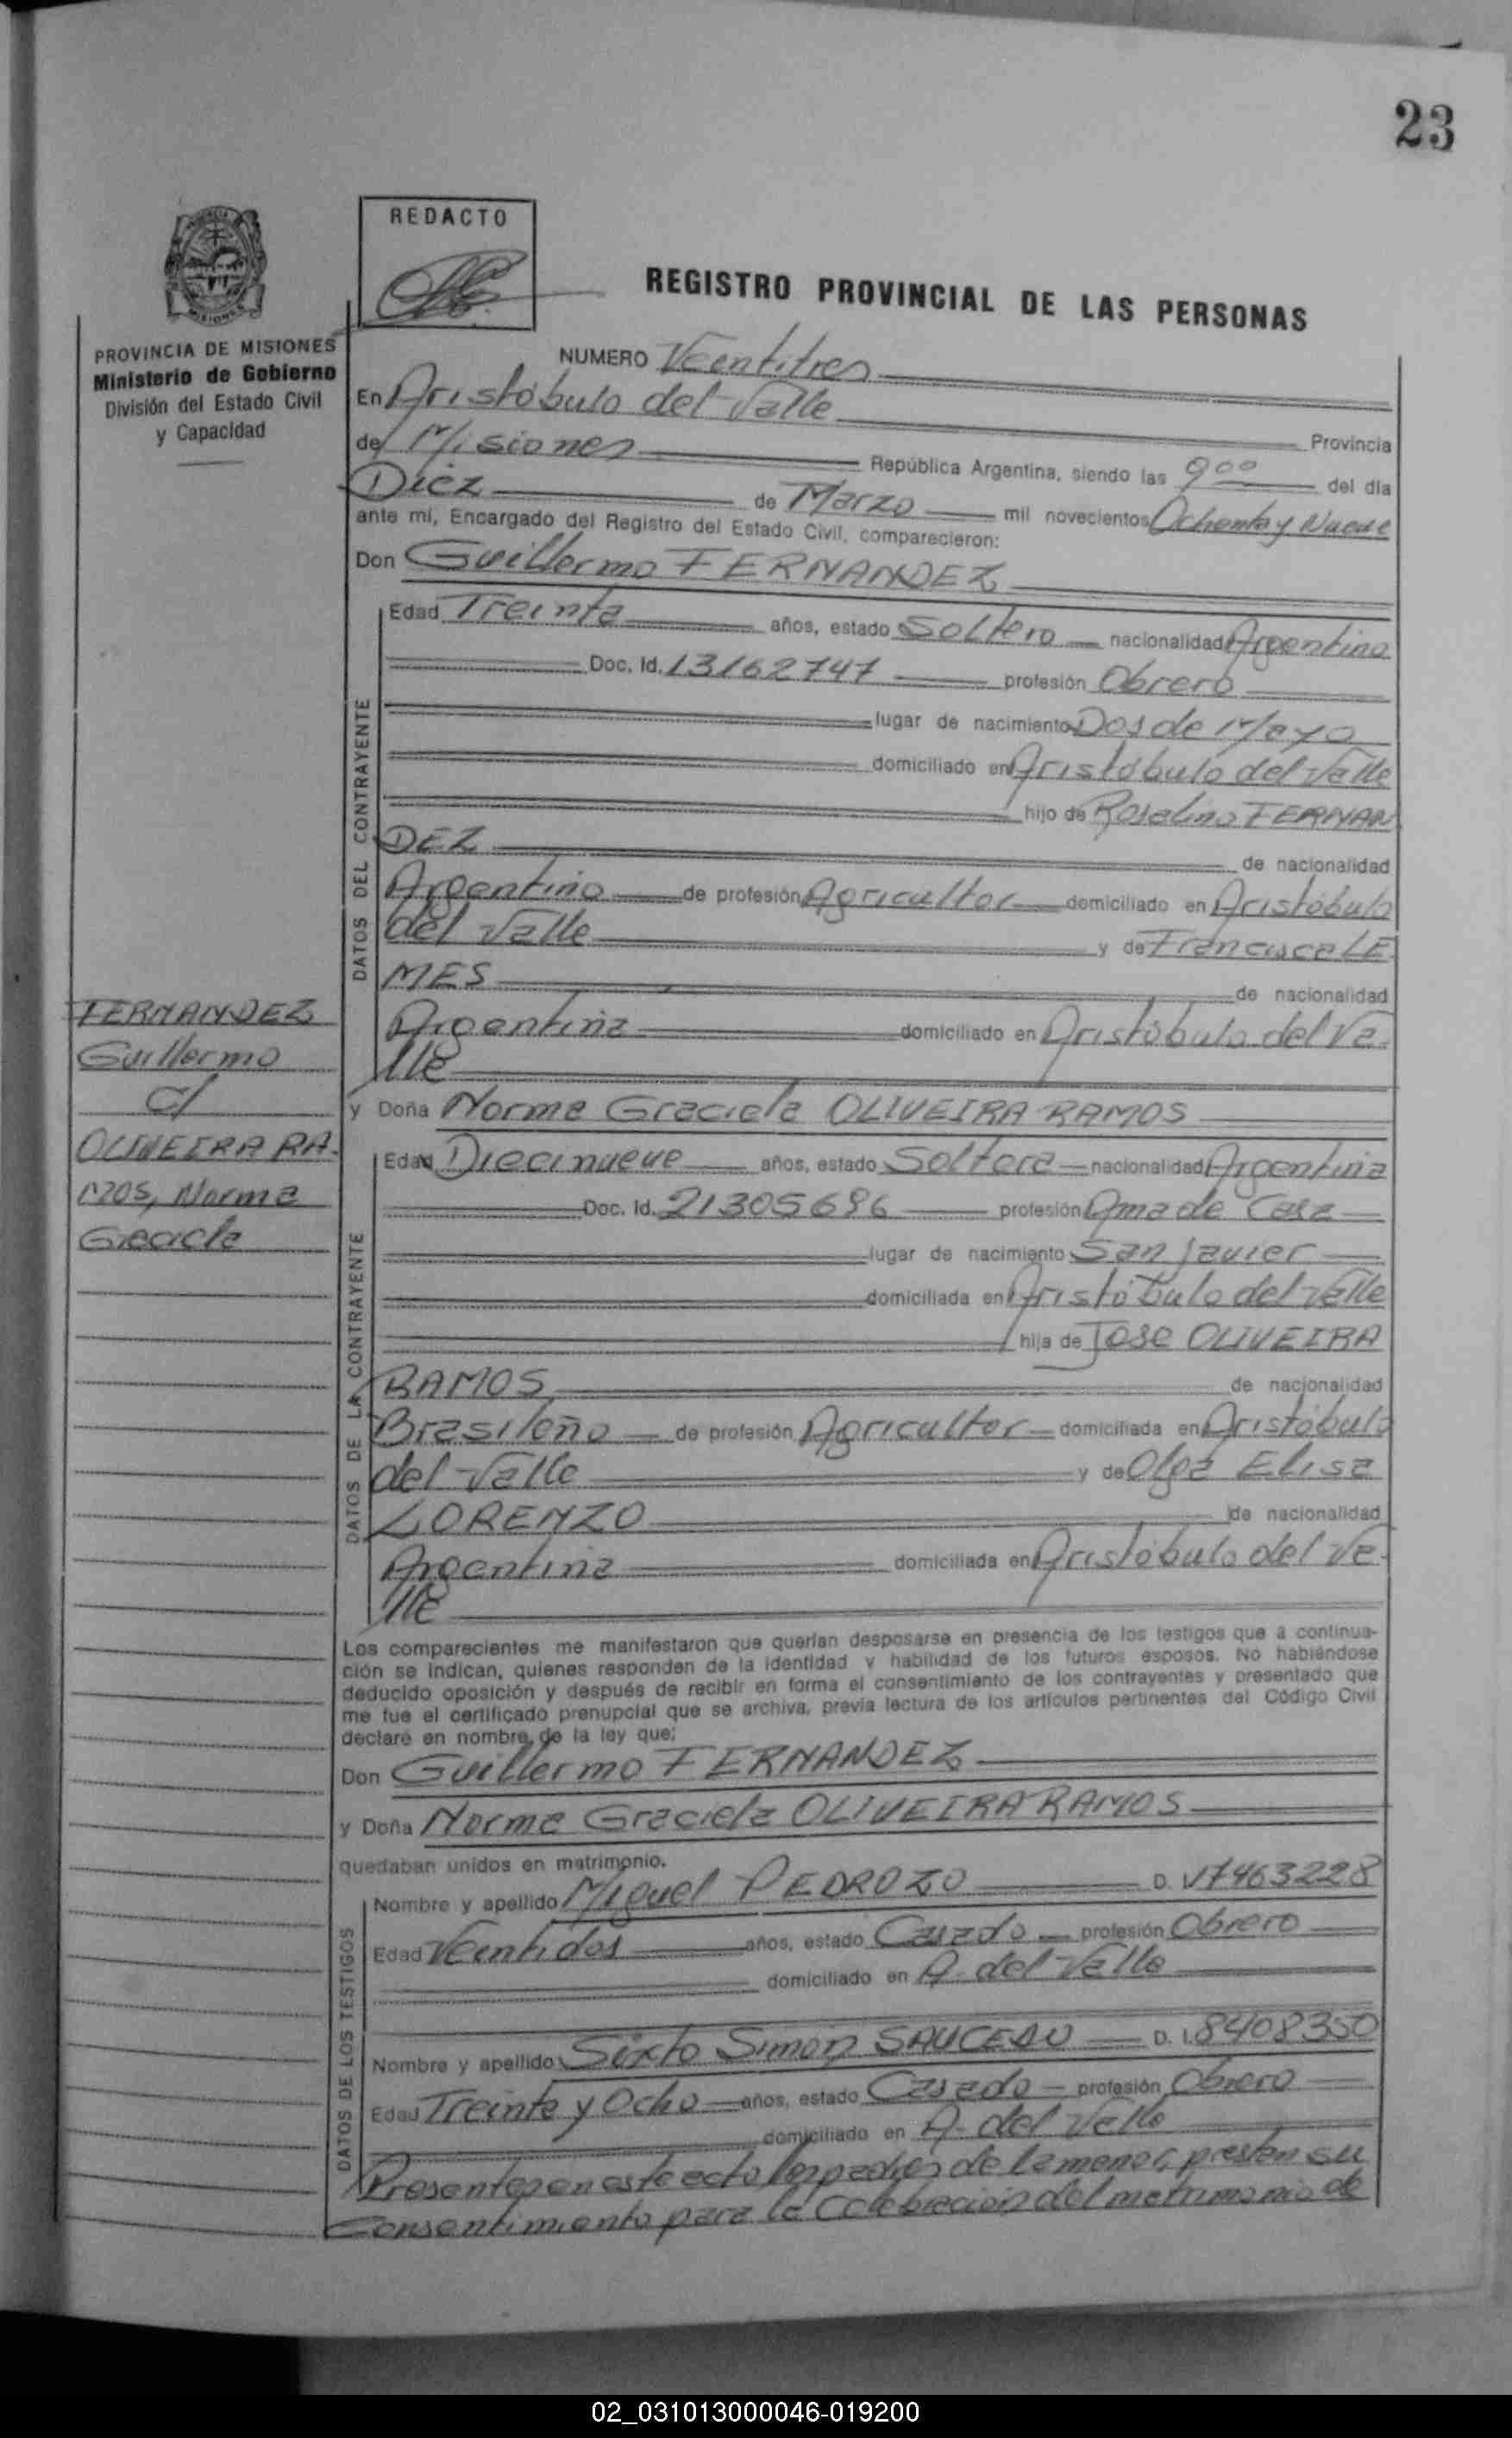 23
REDACTO
REGISTRO PROVINCIAL DE LAS PERSONAS
PROVINCIA DE MISIONES
Ministerio de Gobierno
División del Estado Civil
y Capacidad
NUMERO Veentitres
En Aristóbulo del Valle Provincia
de Misiones República Argentina, siendo las 9 00 del día
Diez de Marzo mil novecientos Ochenta y Nueve
ante mí, Encargado del Registro del Estado Civil, comparecieron:
Don Guillermo FERNANDEZ
DATOS DEL CONTRAYENTE
Edad Treinta años, estado Soltero nacionalidad Argentino
Doc. Id. 13162747 profesión Obrero
lugar de nacimiento Dos de Mayo
domiciliado en Aristóbulo del Valle
hijo de Roselino FERNAN
DEZ de nacionalidad
Argentino de profesión Agricultor domiciliado en Aristóbulo
del Valle y de Francisca LE
MES de nacionalidad
Argentina domiciliado en Aristóbulo del Va-
lle
FERNANDEZ
Guillermo
c/
OLIVEIRA RA-
MOS, Norma
Graciela
y Doña Norma Graciela OLIVEIRA RAMOS
DATOS DE LA CONTRAYENTE
Edad Diecinueve años, estado Soltera nacionalidad Argentina
Doc. Id. 21305686 profesión Ama de Casa
lugar de nacimiento San Javier
domiciliada en Aristóbulo del Valle
hija de Jose OLIVEIRA
RAMOS de nacionalidad
Brasileño de profesión Agricultor domiciliada en Aristóbulo
del Valle y de Olga Elisa
LORENZO de nacionalidad
Argentina domiciliada en Aristóbulo del Va-
lle
Los comparecientes me manifestaron que querían desposarse en presencia de los testigos que a continua-
ción se indican, quienes responden de la identidad y habilidad de los futuros esposos. No habiéndose
deducido oposición y después de recibir en forma el consentimiento de los contrayentes y presentado que
me fue el certificado prenupcial que se archiva, previa lectura de los artículos pertinentes del Código Civil
declaré en nombre de la ley que:
Don Guillermo FERNANDEZ
y Doña Norma Graciela OLIVEIRA RAMOS
quedaban unidos en matrimonio.
DATOS DE LOS TESTIGOS
Nombre y apellido Miguel PEDROZO D. I. 17463228
Edad Veintidos años, estado Casado profesión Obrero
domiciliado en A. del Valle
Nombre y apellido Sixto Simón SAUCEDO D. I. 8408350
Edad Treinta y Ocho años, estado Casado profesión Obrero
domiciliado en A. del Valle
Presentes en este acto los padres de la menor, prestan su
Consentimiento para la Celebración del matrimonio de
02_031013000046-019200